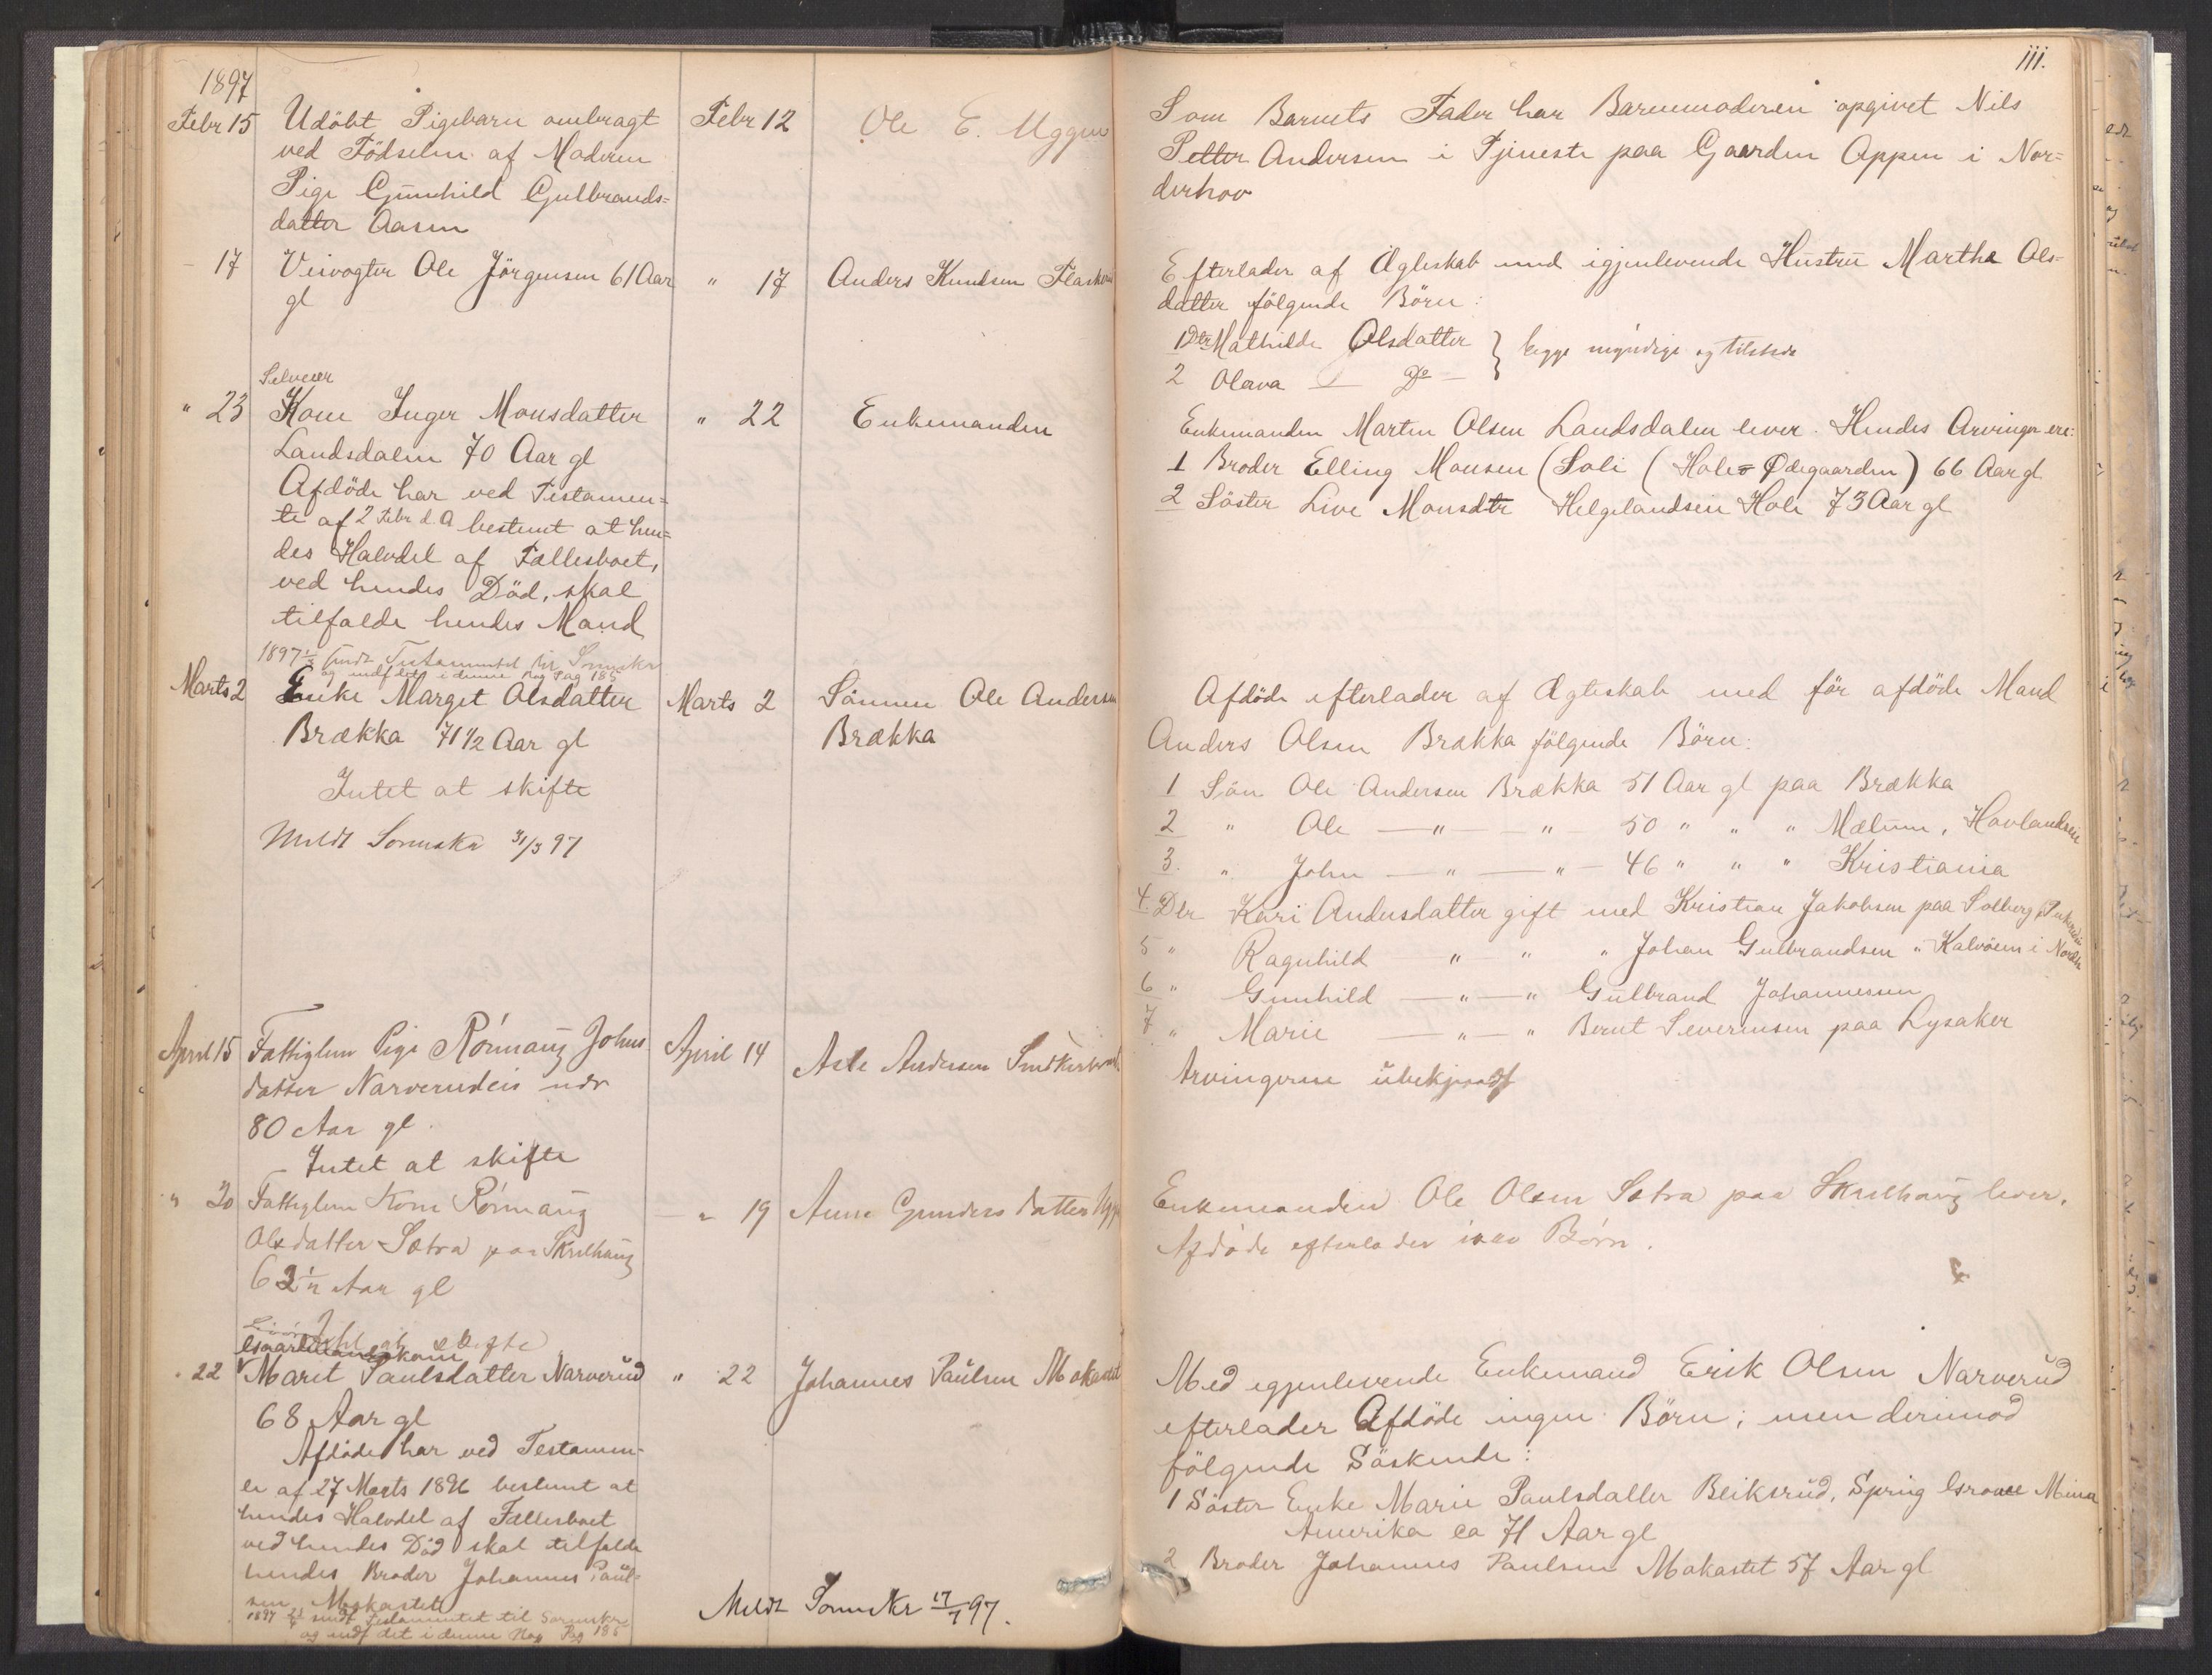 1897
Febr 15 Udöbt Pigebarn ombragt Febr 12 Ole E. Uggen
ved Födselen af Moderen
Pige Gunhild Gulbrands=
datter Aasen
Som Barnets Fader har Barnemoderen opgivet Nils
Petter Andersen i Tjeneste paa Gaarden Oppen i Nor=
derhov
- 17 Veivogter Ole Jörgensen 61 Aar " 17 Anders Knudsen
gl
Efterlader af Ægteskab med igjenlevende Hustru Martha Ols=
datter fölgende Börn:
1 Dtr Mathilde Olsdatter } begge myndige og tilstede
2 Olava — Do —
Selveier
" 23 Kone Inger Monsdatter " 22 Enkemanden
Landsdalen 70 Aar gl
Afdöde har ved Testamen=
te af 2 Febr d.A bestemt at hen=
des Halvdel af Fællesboet,
ved hendes Död, skal
tilfalde hendes Mand
1897 Testamentet til Sorenskr
og indf det i denne Prot Pag 185
Enkemanden Martin Olsen Landsdalen lever. Hendes Arvinger ere:
1 Broder Elling Monsen (Soli (Hole= Ødegaarden) 66 Aar gl
2 Söster Live Monsdtr Helgelandseie Hole 73 Aar gl
Marts 2 Enke Marget Olsdatter Marts 2 Sönnen Ole Andersen
Brækka 71 1/2 Aar gl Brækka
Intet at skifte
Meldt Sorenskr 31/3 97
Afdöde efterlader af Ægteskab med för afdöde Mand
Anders Olsen Brækka fölgende Börn:
1 Sön Ole Andersen Brækka 51 Aar gl paa Brækka
2 " Ole — " — " — 50 " " " Mælum, Hovlandseie
3. " John — " — " — 46 " " " Kristiania
4. Dtr Kari Andersdatter gift med Kristian Jakobsen paa Solberg
5 " Ragnhild — " — " " Johan Gulbrandsen " Kalvöen i Norderh
6 " Gunhild — " — " Gulbrand Johannesen
7 " Marie — " — " Bernt Severinsen paa Lysaker
April 15 Fattiglem Pige Rönnaug Johns April 14 Asle Andersen
datter Narverudeie udv
80 Aar gl.
Intet at skifte
Arvingerne ubekjendt
" 20 Fattiglem Kone Rönnaug — " 19 Anne Gundersdatter
Olsdatter Sætra paa Skulhaug
62 1/2 Aar gl
Intet at skifte
Enkemanden Ole Olsen Sætra paa Skulhaug lever.
Afdöde efterlader Börn.
Gaardmandskone
" 22 Marit Paulsdatter Narverud " 22 Johannes Paulsen Mokastet
68 Aar gl
Afdöde har ved Testamen-
te af 27 Marts 1896 bestemt at
hendes Halvdel af Fællesboet
ved hendes Död skal tilfalde
hendes Broder Johannes Paul=
sen Mokastet
1897 sendt Testamentet til Sorenskr
og indf det i denne Prot Pag 185
Meldt Sorenskr 17/7 97.
Med igjenlevende Enkemand Erik Olsen Narverud
efterlader Afdöde ingen Börn; men derimod
fölgende Söskende:
1 Söster Enke Marie Paulsdatter Beiksrud, Spring Grove Mina
Amerika ca 71 Aar gl
2 Broder Johannes Paulsen Mokastet 57 Aar gl
111.